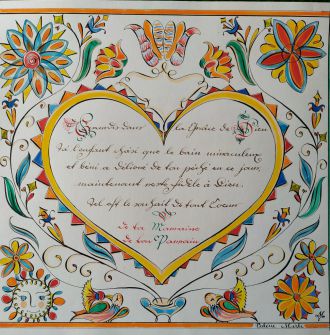 Grandis dans la Grâce de Dieu
Toi l'enfant choisi que le bain miraculeux
et béni a délivré de ton péché en ce jour,
maintenant reste fidèle à Dieu.
Tel est le souhait de tout Coeur
de ta Marraine
de ton Parrain